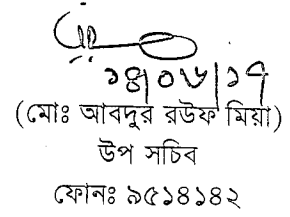 ১৪/০৬/১৭
(মোঃ আবদুর রউফ মিয়া)
উপ সচিব
ফোনঃ ৯৫১৪১৪২